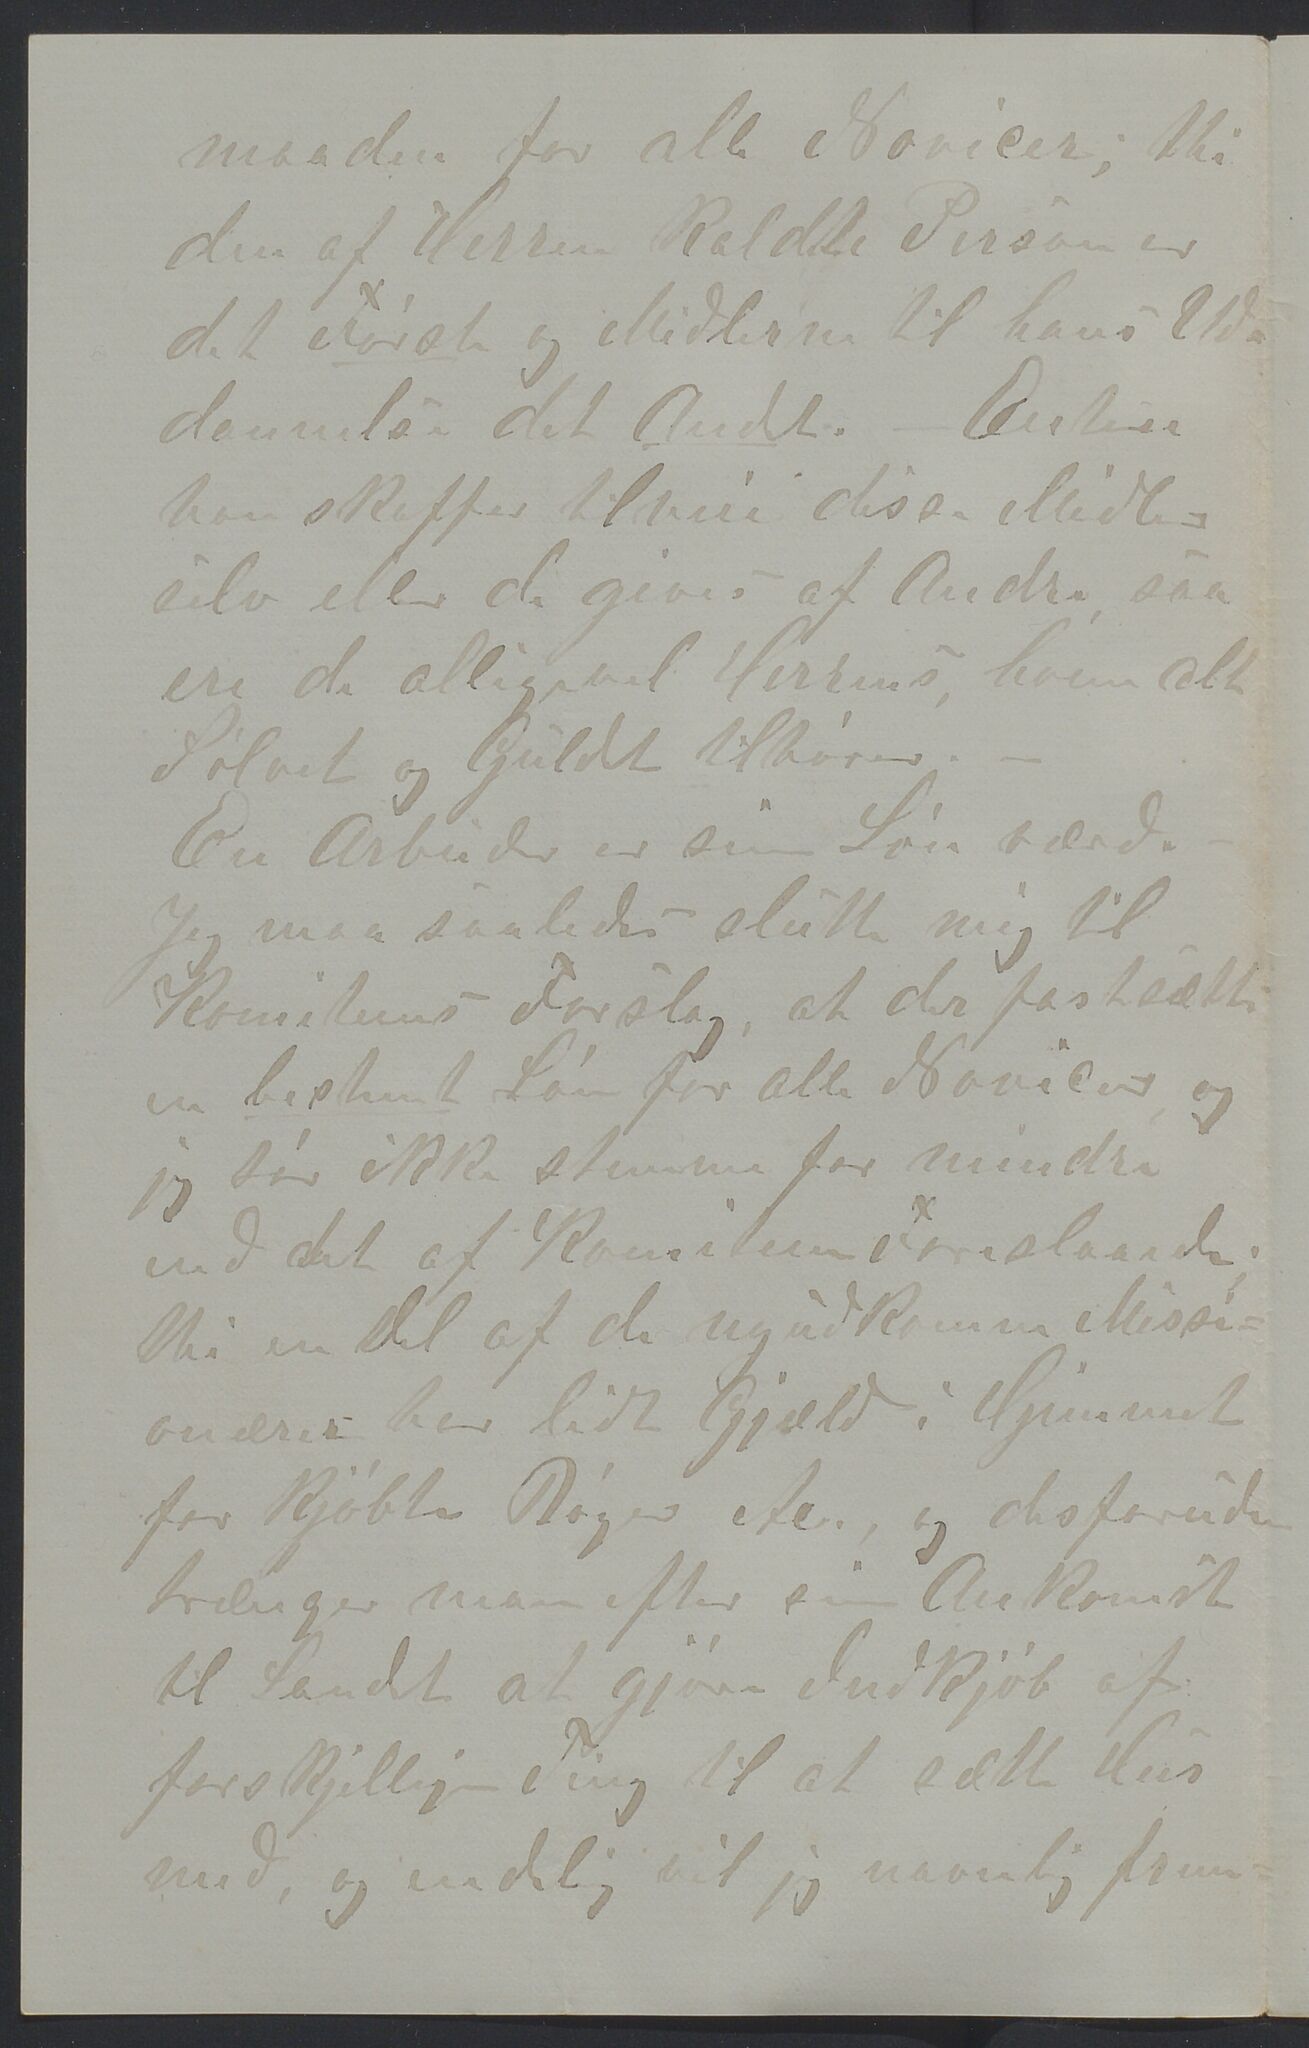 maaden for alle Novicer; thi
den af Herren kaldte Person er
det Første og Midlerne til hans Ud-
dannelse det Andet. – Enten
han skaffer tilveie disse Midler
selv eller de gives af Andre, saa
ere de alligevel Herrens, hvem alt
Sølvet og Guldet tilhører. –
En Arbeider er sin Løn værd. –
Jeg maa saaledes slutte mig til
Komiteens Forslag, at der fastsættes
en bestemt Løn for alle Novicer, og
jeg tør ikke stemme for mindre
end det af Komiteen Foreslaaede;
thi en Del af de nyudkomne Missi=
onærer har lidt Gjæld i Hjemmet
for kjøbte Bøger etc., og desforuden
trænger man efter sin Ankomst
til Landet at gjøre Indkjøb af
forskjellige Ting til at sætte Hus
med, og endelig vil jeg navnlig frem=